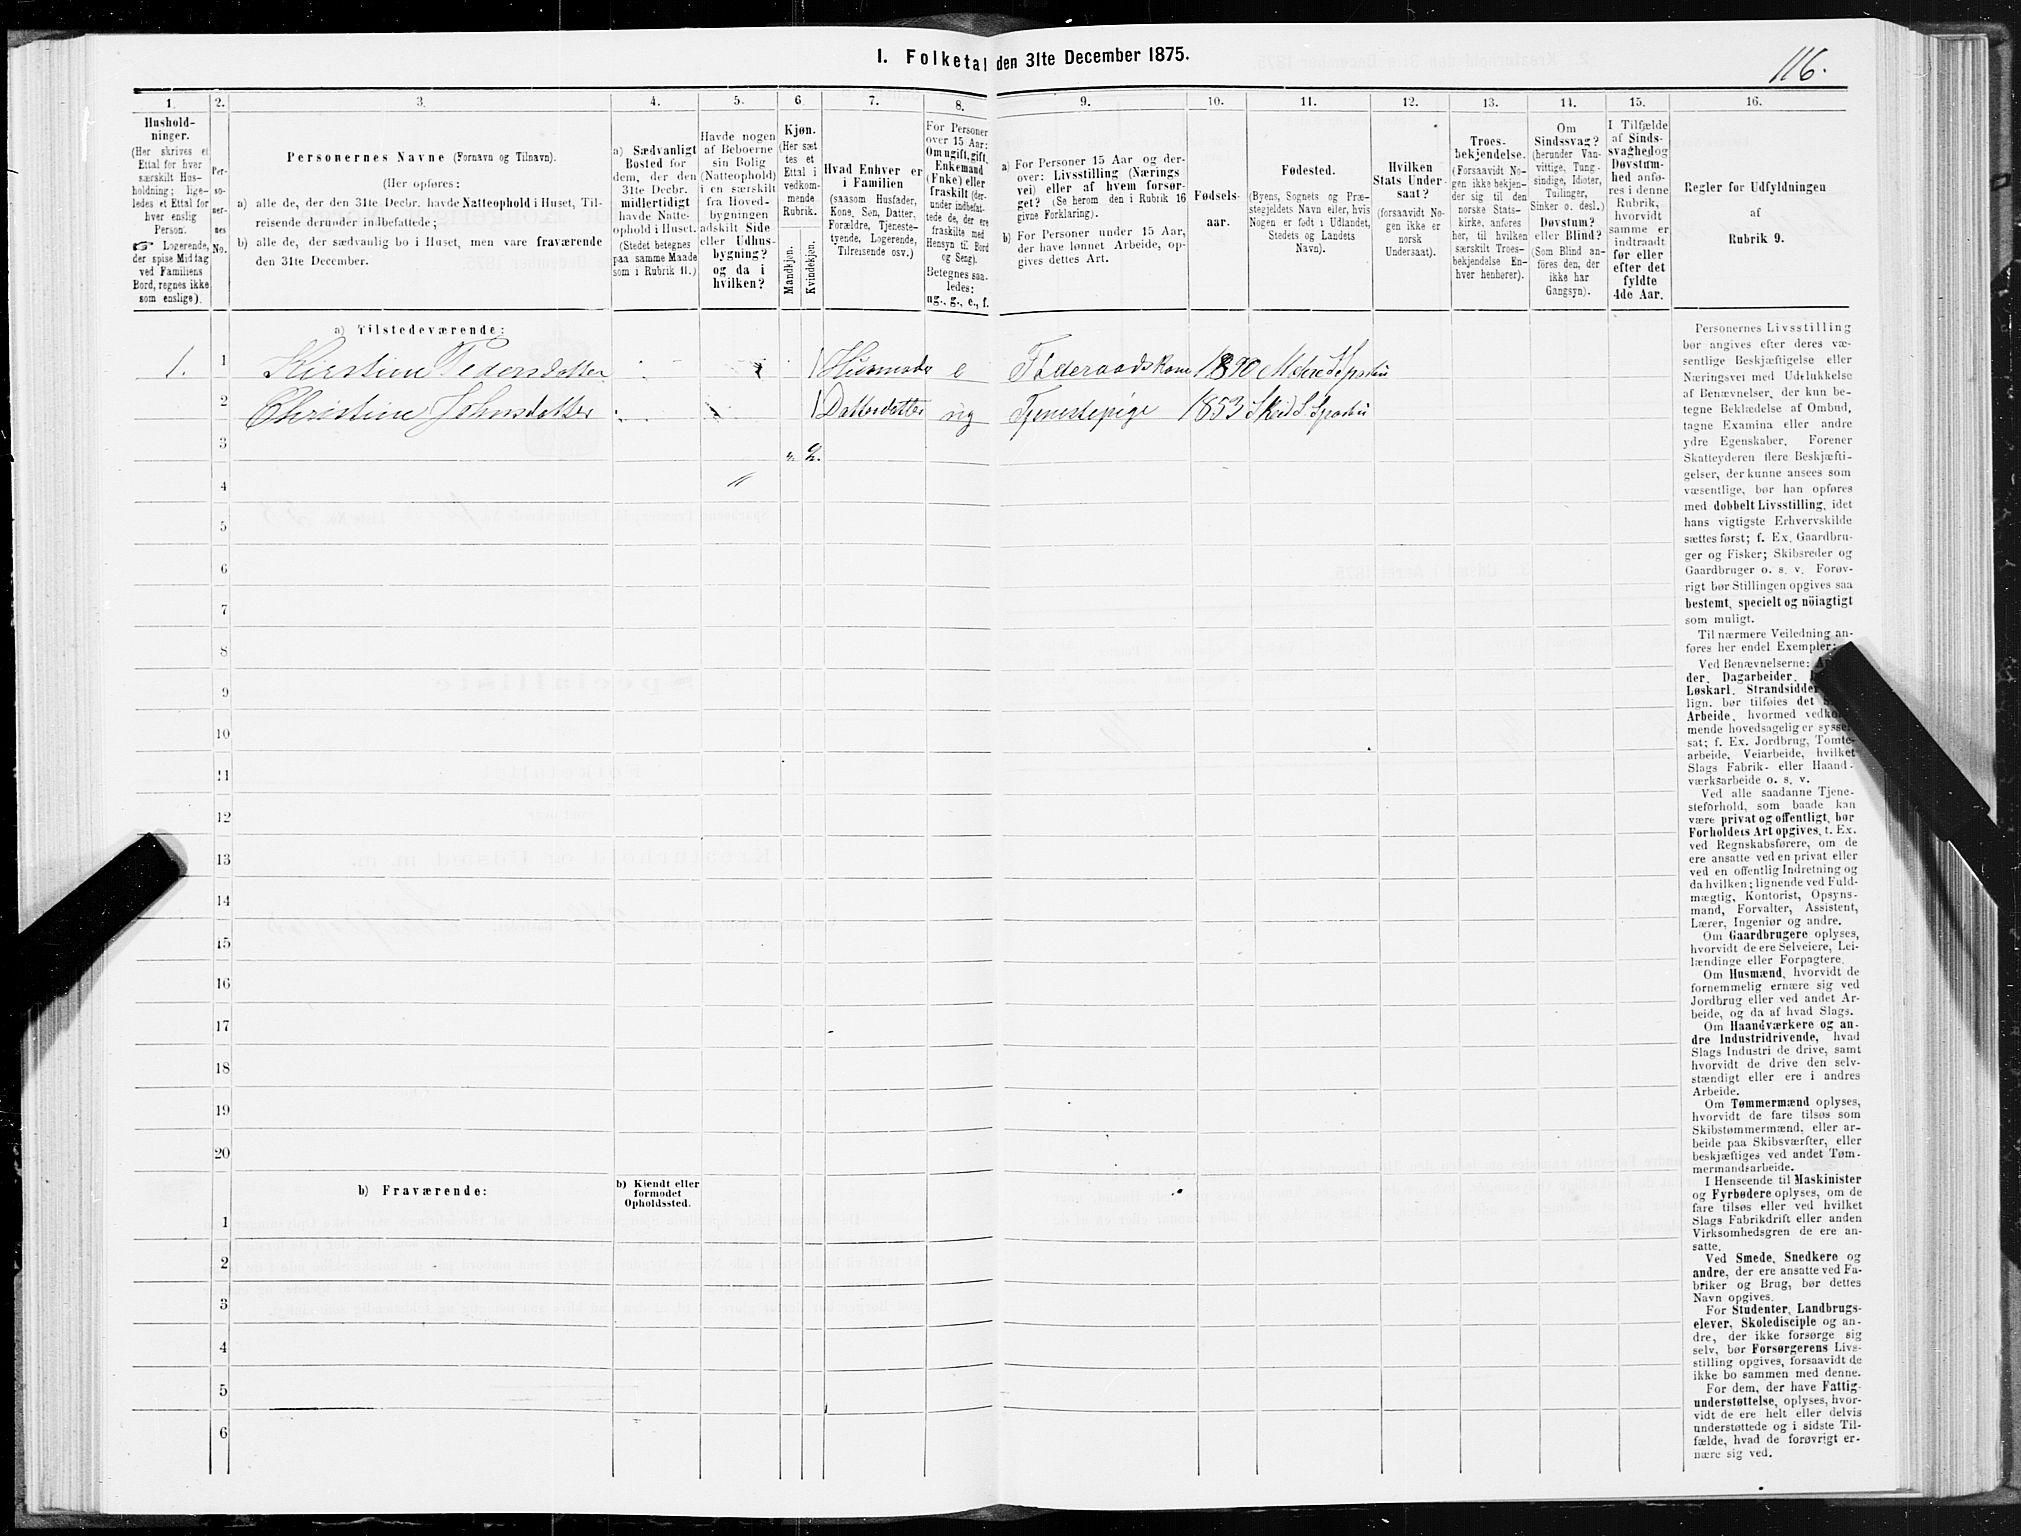 I. Folketal den 31te December 1875.
116.
1.
Hushold-
ninger.
(Her skrives et
Ettal for hver
særskilt Hus-
holdning; lige-
ledes et Ettal for
hver enslig
Person.
☞ Logerende,
der spise Middag
ved Familiens
Bord, regnes ikke
som enslige).
2.
Per-
so-
ner-
nes
No.
3.
Personernes Navne (Fornavn og Tilnavn).
(Her opføres:
a) alle de, der den 31te Decbr. havde Natteophold i Huset, Til-
reisende derunder indbefattede;
b) alle de, der sædvanlig bo i Huset, men vare fraværende
den 31te December.
4.
a) Sædvanligt
Bosted for
dem, der den
31te Decbr.
midlertidigt
havde Natte-
ophold i Huset.
(Stedet betegnes
paa samme Maade
som i Rubrik 11.)
5.
Havde nogen
af Beboerne
sin Bolig
(Natteophold)
i en særskilt
fra Hoved-
bygningen
adskilt Side
eller Udhus-
bygning?
og da i
hvilken?
6.
Kjøn.
(Her sæt
tes et
Ettal i
vedkom-
mende
Rubrik.
Mandkjøn.
Kvindekjøn.
7.
Hvad Enhver er
i Familien
(saasom Husfader,
Kone, Søn, Datter,
Forældre, Tjeneste-
tyende, Logerende,
Tilreisende osv.)
8.
For Personer
over 15 Aar:
Om ugift, gift,
Enkemand
(Enke) eller
fraskilt (der-
under indbefat-
tede de, der ere
fraskilte med
Hensyn til Bord
og Seng).
Betegnes saa-
ledes:
ug., g., e., f.
9.
a) For Personer 15 Aar og der-
over: Livsstilling (Nærings
vei) eller af hvem forsør-
get? (Se herom den i Rubrik 16
givne Forklaring).
b) For Personer under 15 Aar,
der have lønnet Arbeide, op-
gives dettes Art.
10.
Fødsels-
aar.
11.
Fødested.
(Byens, Sognets og Præ-
stegjeldets Navn eller, hvis
Nogen er født i Udlandet,
Stedets og Landets
Navn).
12.
Hvilken
Stats Under-
saat?
(forsaavidt No-
gen ikke er
norsk
Undersaat).
13.
Troes-
bekjendelse.
(Forsaavidt No-
gen ikke bekjen-
der sig til den
norske Stats-
kirke, anføres
her, til hvilken
særskilt Troes-
bekjendelse En-
hver henhører).
14.
Om
Sindssvag?
(herunder Van-
vittige, Tung-
sindige, Idioter,
Tullinger,
Sinker o. desl.)
Døvstum?
eller Blind?
(Som Blind an-
føres den, der
ikke har
Gangsyn).
15.
I Tilfælde
af Sinds-
svaghed og
Døvstum-
hed anfø-
res i denne
Rubrik,
hvorvidt
samme er
indtraadt
før eller
efter det
fyldte
4de Aar.
16.
Regler for Udfyldningen
af
Rubrik 9.
a) Tilstedeværende:
1. 1 Kirstine Pedersdatter 1 Husmoder e Föderaadskone 1890 Mære S Sparbu
2 Christine Johnsdatter 1 Datterdatter ug Tjenestepige 1853 Skei S Sparbu
3 2.
4 "
5
6
7
8
9
10
11
12
13
14
15
16
17
18
19
20
b) Fraværende:
b) Kjendt eller
formodet
Opholdssted.
1
2
3
4
5
6
Personernes Livsstilling
bør angives efter deres væ-
sentlige Beskjæftigelse eller
Næringsvei med Udelukkelse
af Benævnelser, der kun be-
tegne Beklædelse af Ombud,
tagne Examina eller andre
ydre Egenskaber. Forener
Skatteyderen flere Beskjæfti-
gelser, der kunne ansees som
væsentlige, bør han opføres
med dobbelt Livsstilling, idet
hans vigtigste Erhvervskilde
sættes først; f. Ex. Gaardbru-
ger og Fisker; Skibsreder og
Gaardbruger o. s. v. Forøv-
rigt bør Stillingen opgives saa
bestemt, specielt og nöiagtigt
som muligt.
Til nærmere Veiledning an-
føres her endel Exempler:
Ved Benævnelserne:
der, Dagarbeider,
Løskarl, Strandsidder
lign. bør tilføies det
Arbeide, hvormed vedkom-
mende hovedsagelig er syssel-
sat; f. Ex. Jordbrug, Tomte-
arbeide, Veiarbeide, hvilket
Slags Fabrik- eller Haand-
værksarbeide o. s. v.
Ved alle saadanne Tjene-
steforhold, som baade kan
være privat og offentligt, bør
Forholdets Art opgives, t. Ex.
ved Regnskabsførere, om de
ere ansatte ved en privat eller
ved en offentlig Indretning og
da hvilken; lignende ved Fuld-
mægtig, Kontorist, Opsyns-
mand, Forvalter, Assistent,
Lærer, Ingeniør og andre.
Om Gaardbrugere oplyses,
hvorvidt de ere Selveiere, Lei-
lændinge eller Forpagtere.
Om Husmænd, hvorvidt de
fornemmelig ernære sig ved
Jordbrug eller ved andet Ar-
beide, og da af hvad Slags.
Om Haandværkere og an-
dre Industridrivende, hvad
Slags Industri de drive, samt
hvorvidt de drive den selv-
stændigt eller ere i andres
Arbeide.
Om Tømmermænd oplyses,
hvorvidt de fare tilsøs som
Skibstømmermænd, eller ar-
beide paa Skibsværfter, eller
beskjæftiges ved andet Tøm-
mermandsarbeide.
I Henseende til Maskinister
og Fyrbødere oplyses, om de
fare tilsøs eller ved hvilket
Slags Fabrikdrift eller anden
Virksomhedsgren de ere an-
satte.
Ved Smede, Snedkere og
andre, der ere ansatte ved Fa-
briker og Brug, bør dettes
Navn opgives.
For Studenter, Landbrugs-
elever, Skoledisciple og an-
dre, der ikke forsørge sig
selv, bør Forsørgerens Livs-
stilling opgives, forsaavidt de
ikke bo sammen med denne.
For dem, der have Fattig-
understøttelse, oplyses, hvor-
vidt de ere helt eller delvis
understøttede og i sidste Til-
fælde, hvad de forøvrigt er-
nære sig ved.